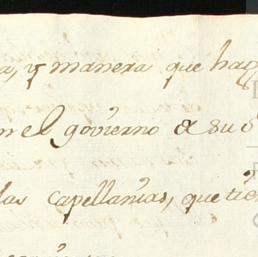 a, y manera que hag
en el govierno & su S
las capellanias, que tie